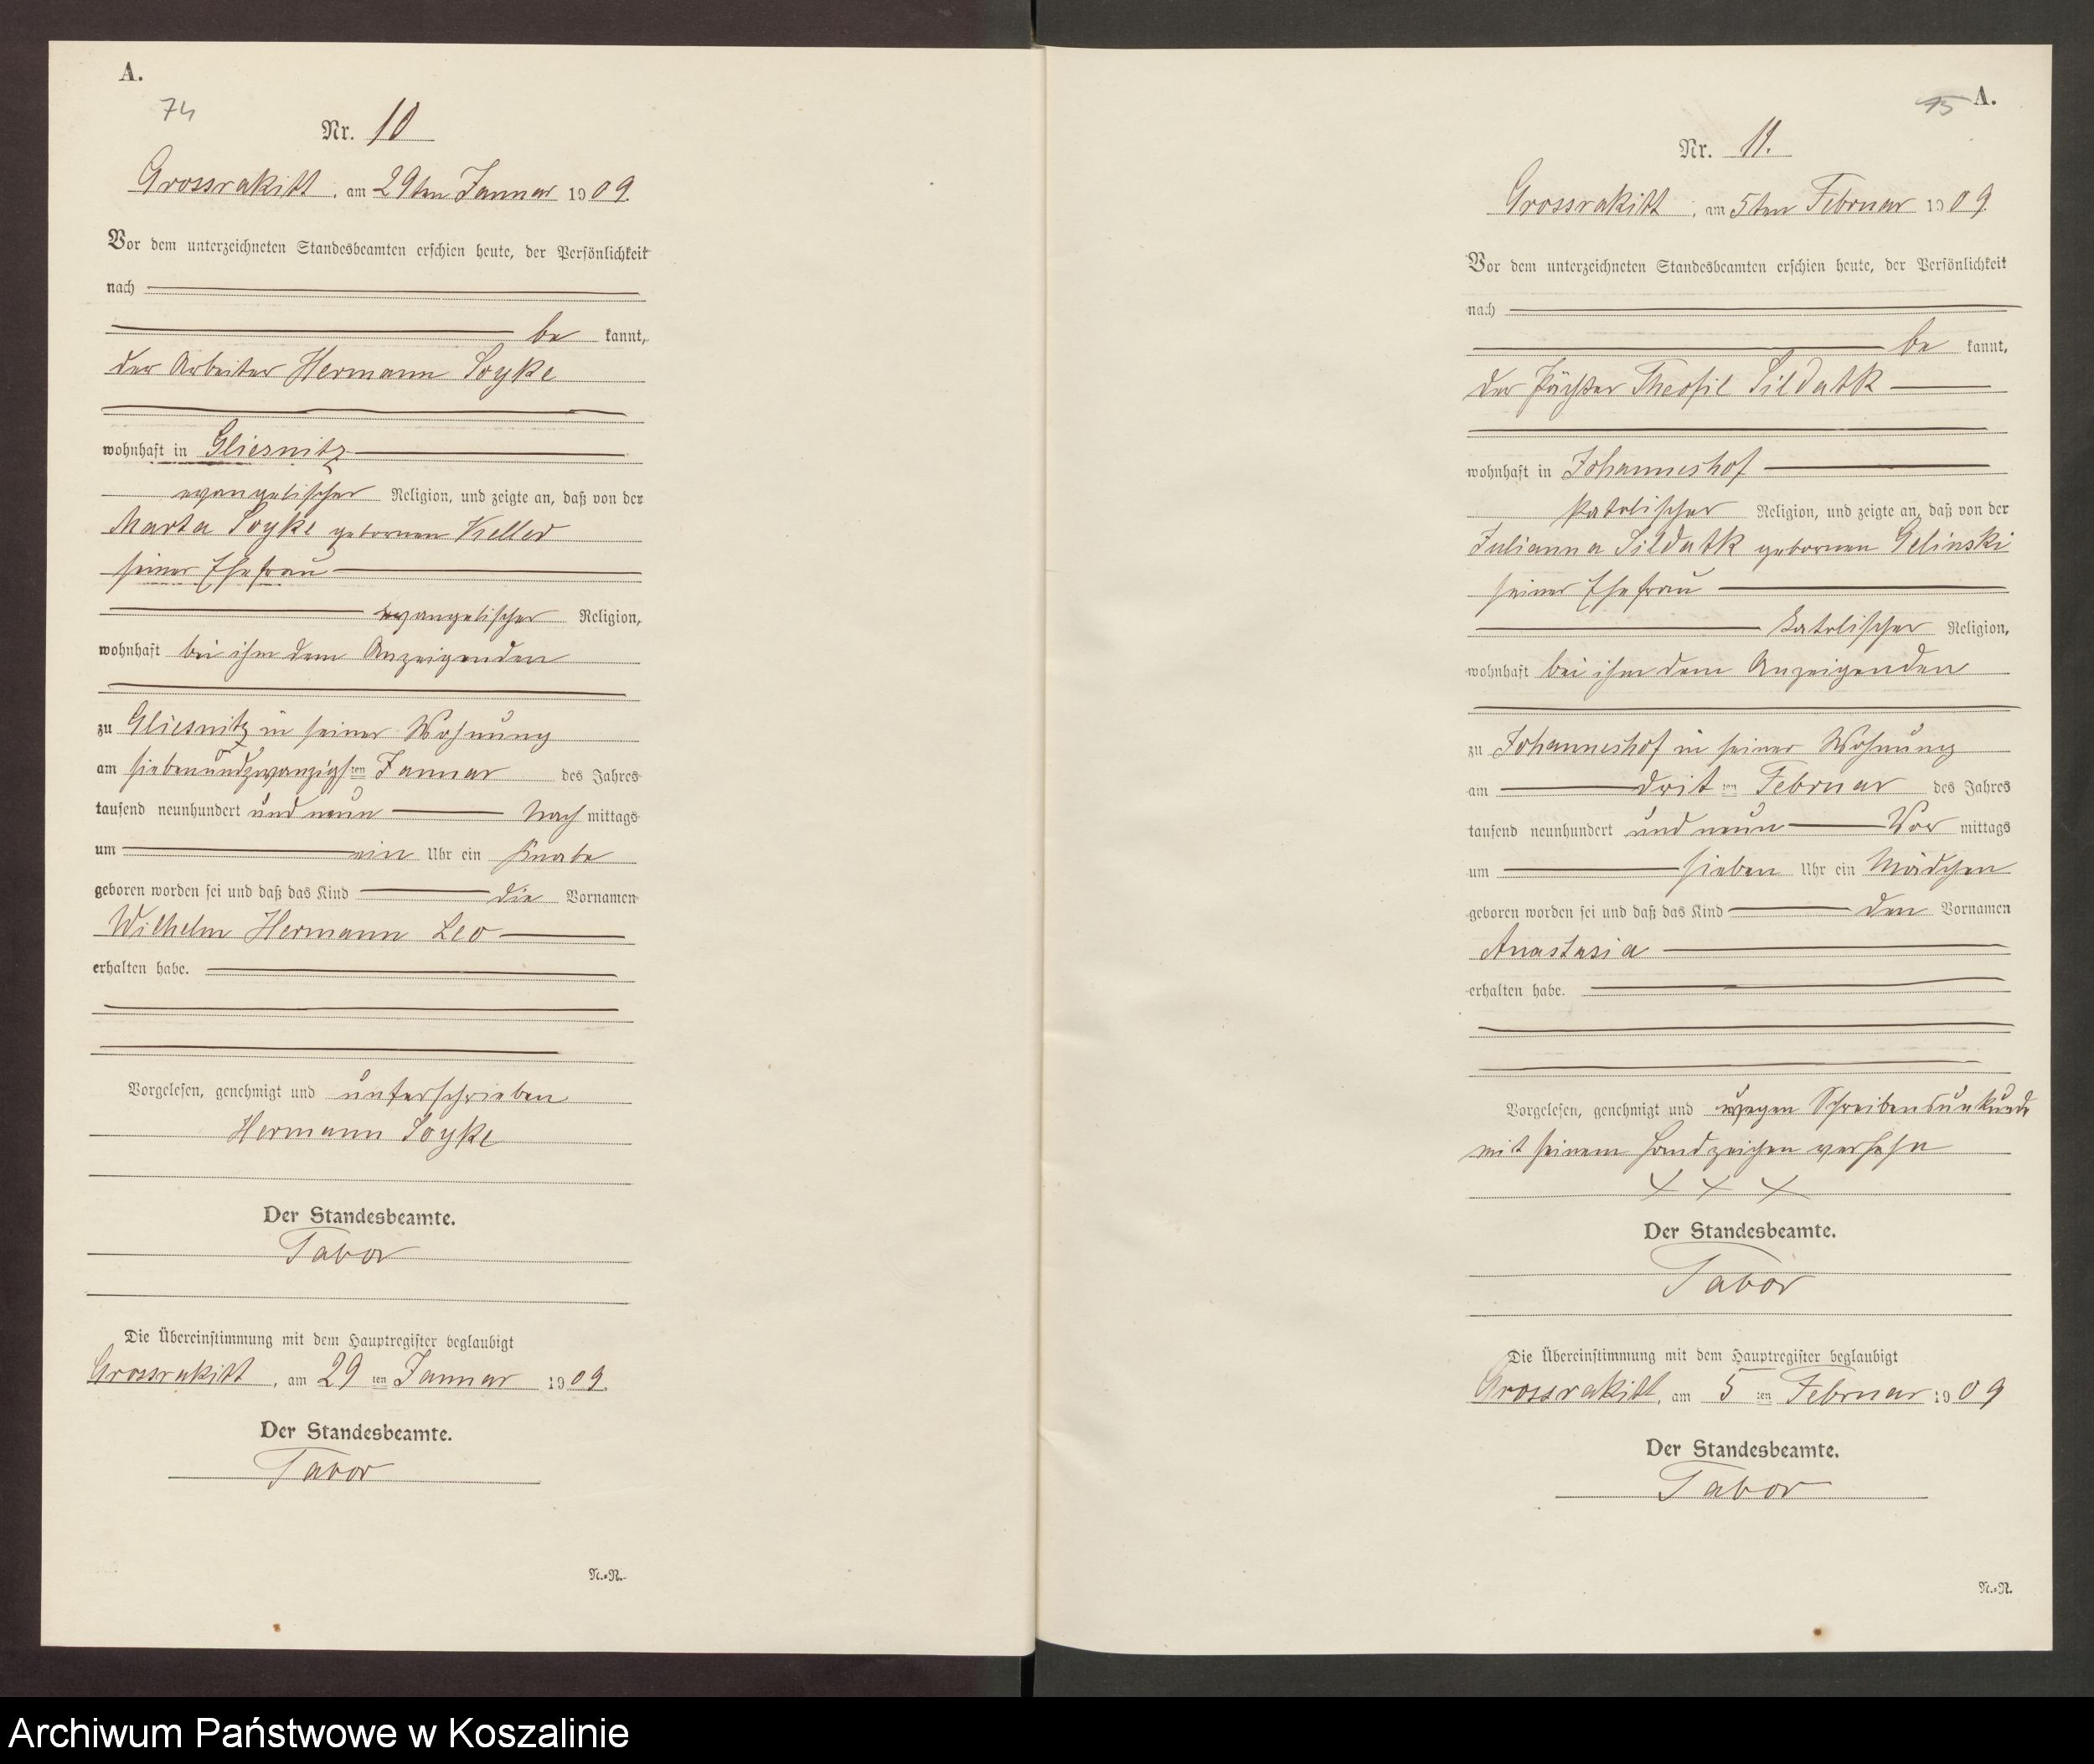 A.
74
Nr. 10
Grossrakitt, am 29ten Januar 1909.
Vor dem unterzeichneten Standesbeamten erschien heute, der Persönlichkeit
nach
be kannt,
der Arbeiter Hermann Soyke
wohnhaft in Gliesnitz
evangelischer Religion, und zeigte an, daß von der
Marta Soyke gebornen Keller
seiner Ehefrau
evangelischer Religion,
wohnhaft bei ihm dem Anzeigenden
zu Gliesnitz in seiner Wohnung
am siebenundzwanzigsten Januar des Jahres
tausend neunhundert und neun Nach mittags
um ein Uhr ein Knabe
geboren worden sei und daß das Kind die Vornamen
Wilhelm Hermann Leo
erhalten habe.
Vorgelesen, genehmigt und unterschrieben
Hermann Soyke
Der Standesbeamte.
Tabor
Die Übereinstimmung mit dem Hauptregister beglaubigt
Grossrakitt, am 29 ten Januar 1909.
Der Standesbeamte.
Tabor
N.=R.
A.
Nr. 11.
Grossrakitt, am 5ten Februar 1909.
Vor dem unterzeichneten Standesbeamten erschien heute, der Persönlichkeit
nach
be kannt,
der Theofil Sildatk
wohnhaft in Johanneshof
katolischer Religion, und zeigte an, daß von der
Julianna Sildatk gebornen Gelinski
seiner Ehefrau
katolischer Religion,
wohnhaft bei ihm dem Anzeigenden
zu Johanneshof in seiner Wohnung
am dritten Februar des Jahres
tausend neunhundert und neun Vor mittags
um sieben Uhr ein Mädchen
geboren worden sei und daß das Kind den Vornamen
Anastasia
erhalten habe.
Vorgelesen, genehmigt und wegen Schreibensunkunde
mit seinem Handzeichen versehn
X X X
Der Standesbeamte.
Tabor
Die Übereinstimmung mit dem Hauptregister beglaubigt
Grossrakitt, am 5 ten Februar 1909
Der Standesbeamte.
Tabor
N.=R.
Archiwum Państwowe w Koszalinie